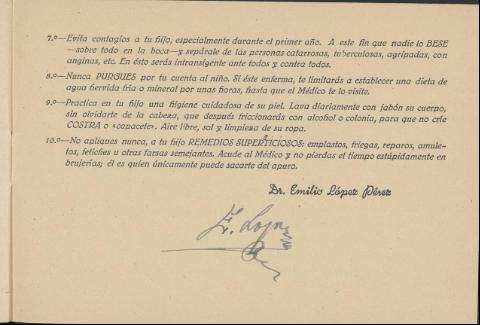 7.º—Evita contagios a tu hijo, especialmente durante el primer año. A este fin que nadie lo BESE
—sobre todo en la boca—y sepárale de las personas catarrosas, tuberculosas, agripadas, con
anginas, etc. En ésto serás intransigente ante todos y contra todos.
8.º—Nunca PURGUES por tu cuenta al niño. Si éste enferma, te limitarás a establecer una dieta de
agua hervida fría o mineral por unas horas, hasta que el Médico te lo visite.
9.º—Practica en tu hijo una higiene cuidadosa de su piel. Lava diariamente con jabón su cuerpo,
sin olvidarte de la cabeza, que después friccionarás con alcohol o colonia, para que no críe
COSTRA o «capacete». Aire libre, sol y limpiesa de su ropa.
10.º—No apliques nunca, a tu hijo REMEDIOS SUPERTICIOSOS: emplastos, friegas, reparos, amule-
tos, fetiches u otras farsas semejantes. Acude al Médico y no pierdas el tiempo estúpidamente en
brujerías; él es quien únicamente puede sacarte del apuro.
Dr. Emilio López Pérez